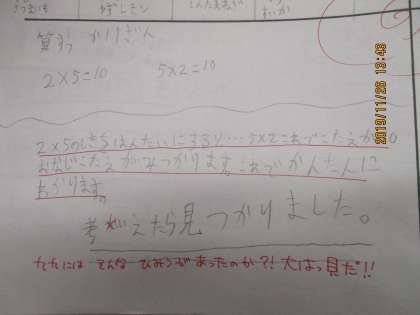 さつまいも
すいか
算数 かけざん
2×5=10 5×2=10
2×5のしきをはんたいにすると…5×2=あでこたえが10
おなじこたえがみつかります。
わかります。
考がえたら見つかりました。
九九には そんな ひみつが あったのか?!大はっ見だ!!
2019/11/26 13:43